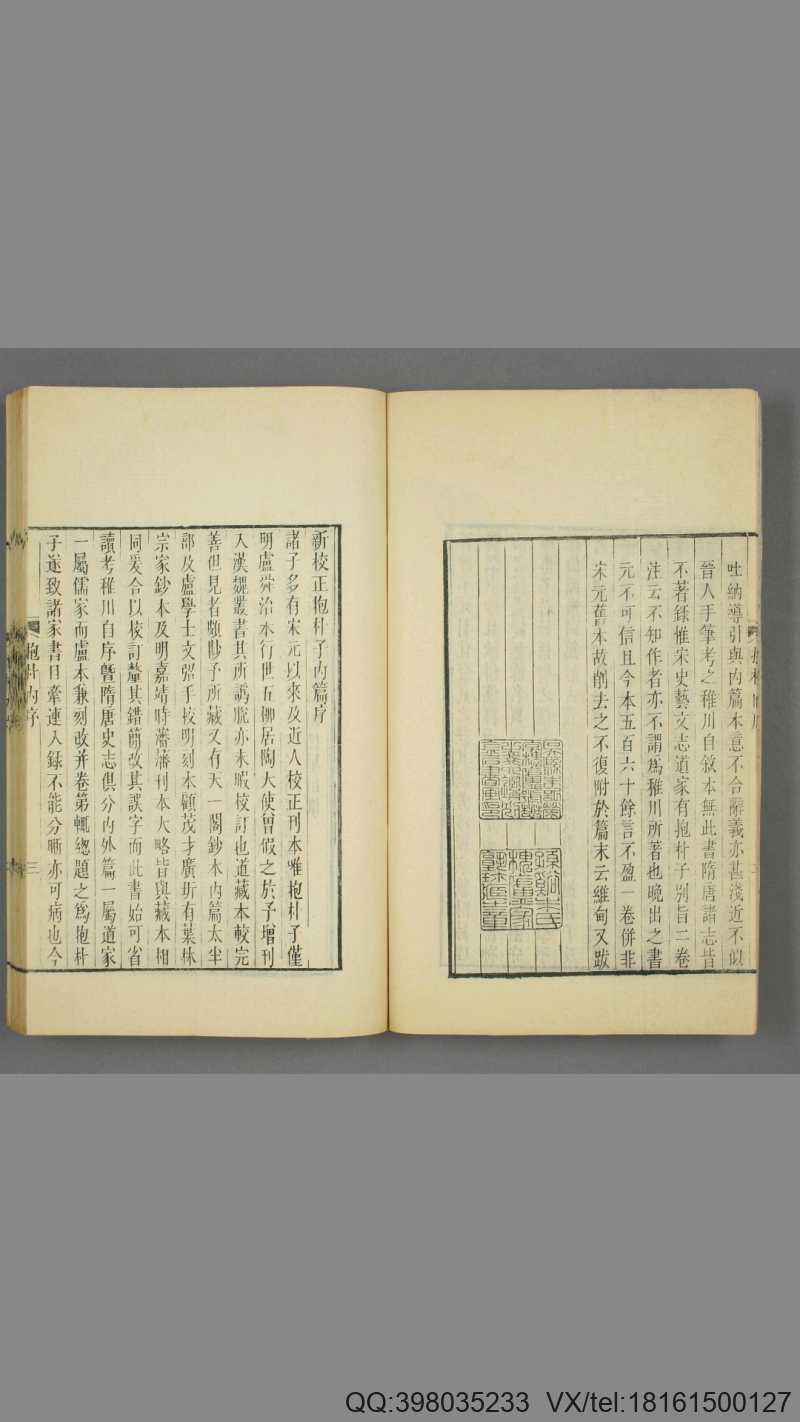 吐納導引與內篇本意不合辭義亦甚淺近不似
晉人手筆考之稚川自敘本無此書隋唐諸志皆
不著錄惟宋史藝文志道家有抱朴子別旨二卷
注云不知作者亦不謂爲稚川所著也晚出之書
元不可信且今本五百六十餘言不盈一卷併非
宋元舊本故削去之不復附於篇末云維甸又跋
新校正抱朴子內篇序
諸子多有宋元以來及近人校正刊本唯抱朴子僅
明盧舜治本行世五柳居陶大使曾假之於予增刊
入漢魏叢書其所譌脫亦未暇校訂也道藏本較完
善但見者頗尟予所藏又有天一閣鈔本內篇太半
部及盧學士文弨手校明刻本顧茂才廣圻有葉林
宗家鈔本及明嘉靖時瀋藩刊本大略皆與藏本相
同爰合以校訂釐其錯簡改其誤字而此書始可省
讀考稚川自序暨隋唐史志俱分內外篇一屬道家
一屬儒家而盧本兼刻改并卷第輒總題之爲抱朴
子遂致諸家書目牽連入錄不能分晰亦可病也今
抱朴內序
三
QQ:398035233 VX/tel:18161500127